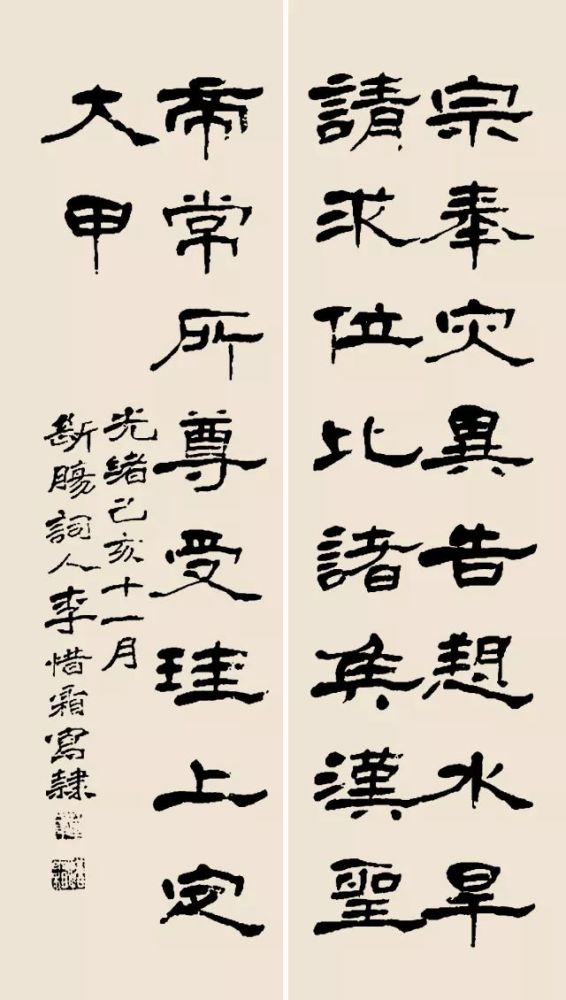 宗奉灾異告愬水旱
請求位比諸矦漢聖
帝常所尊受珪上㝎
大甲
光緒己亥十一月
斷腸詞人李惜霜寫隸